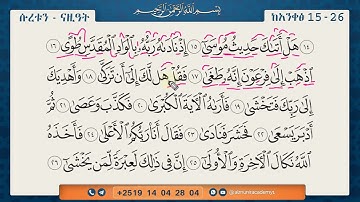 ሱረቱን - ናዚዓት
بِسْمِ اللَّهِ الرَّحْمَٰنِ الرَّحِيمِ
ከአንቀፅ 15 - 26
١٤ هَلْ أَتَىٰكَ حَدِيثُ مُوسَىٰٓ ١٥ إِذْ نَادَىٰهُ رَبُّهُۥ بِٱلْوَادِ ٱلْمُقَدَّسِ طُوًى
١٦ ٱذْهَبْ إِلَىٰ فِرْعَوْنَ إِنَّهُۥ طَغَىٰ ١٧ فَقُلْ هَل لَّكَ إِلَىٰٓ أَن تَزَكَّىٰ ١٨ وَأَهْدِيَكَ
إِلَىٰ رَبِّكَ فَتَخْشَىٰ ١٩ فَأَرَىٰهُ ٱلْءَايَةَ ٱلْكُبْرَىٰ ٢٠ فَكَذَّبَ وَعَصَىٰ ٢١ ثُمَّ
أَدْبَرَ يَسْعَىٰ ٢٢ فَحَشَرَ فَنَادَىٰ ٢٣ فَقَالَ أَنَا۠ رَبُّكُمُ ٱلْأَعْلَىٰ ٢٤ فَأَخَذَهُ
ٱللَّهُ نَكَالَ ٱلْءَاخِرَةِ وَٱلْأُولَىٰٓ ٢٥ إِنَّ فِى ذَٰلِكَ لَعِبْرَةً لِّمَن يَخْشَىٰٓ ٢٦
+2519 14 04 28 04